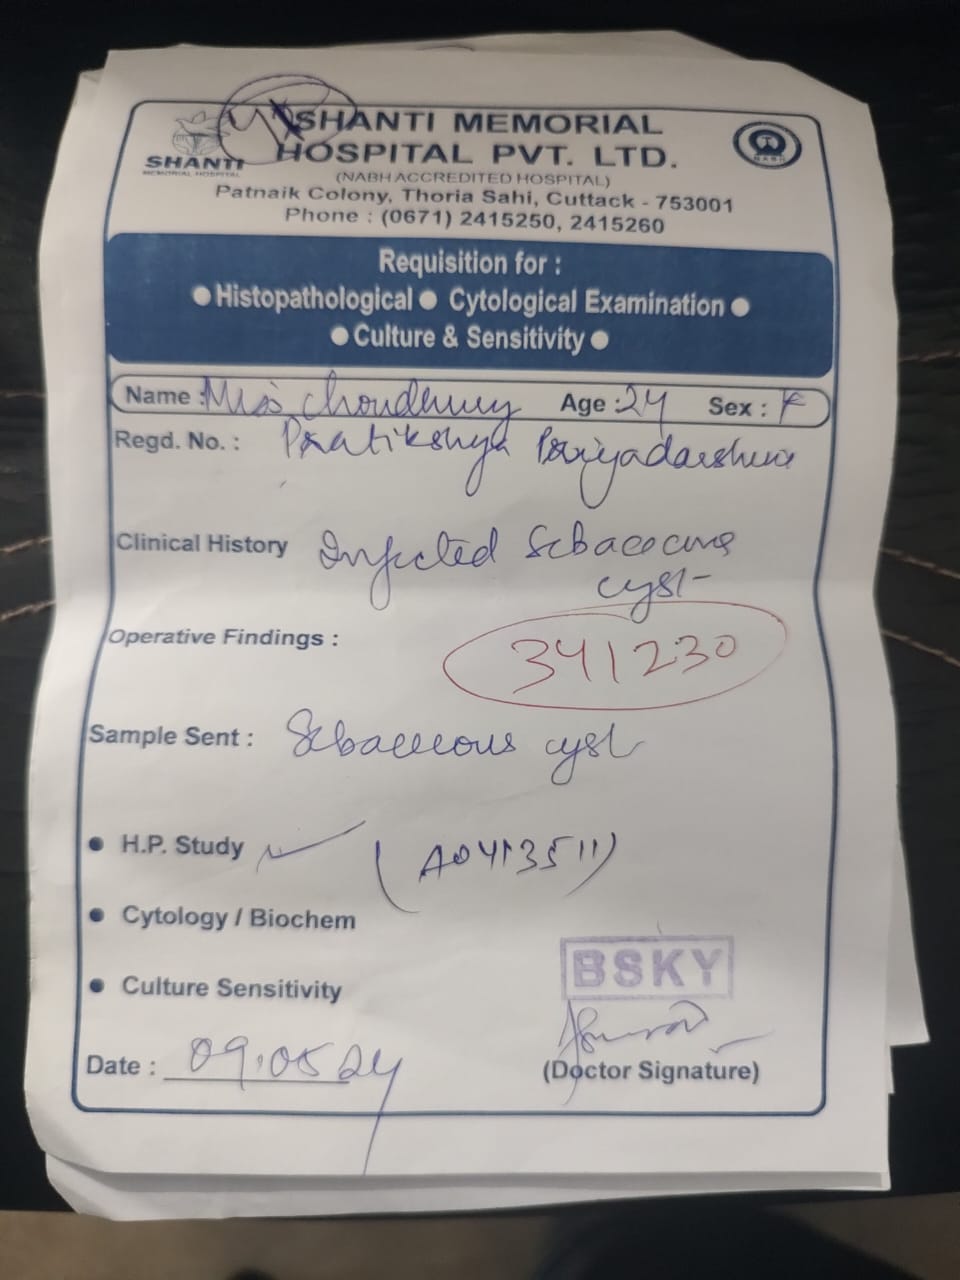 SHANTI MEMORIAL
HOSPITAL PVT. LTD.
SHANTI
MEMORIAL HOSPITAL
(NABH ACCREDITED HOSPITAL)
Patnaik Colony, Thoria Sahi, Cuttack - 753001
Phone : (0671) 2415250, 2415260
Requisition for :
● Histopathological ● Cytological Examination ●
● Culture & Sensitivity ●
Name : Miss Choudhury Age : 24 Sex : F
Regd. No. : Pratikshya Priyadarshini
Clinical History Infected Sebaceous
cyst
Operative Findings :
341230
Sample Sent : Sebaceous cyst
● H.P. Study ✓ (A0413511)
● Cytology / Biochem
● Culture Sensitivity
BSKY
Date : 09.05.24
(Doctor Signature)